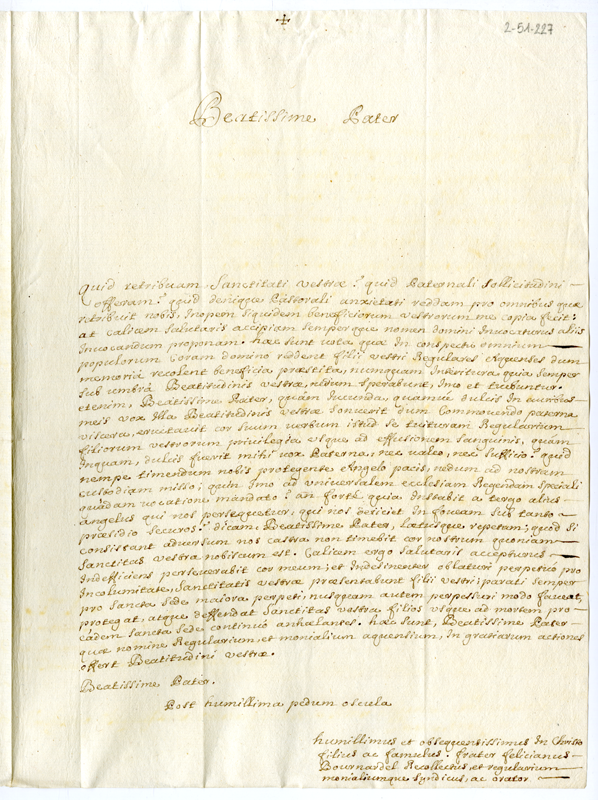 2-51-227
Beatissime Pater
Quid retribuam Sanctitati vestræ? quid Paternali sollicitudini
offeram? quid denique Pastorali anxietati reddam pro omnibus quæ
retribuit nobis. Inopem siquidem beneficiorum vestrorum me copia fecit:
at calicem salutaris accipiam semperque nomen domini Invocaturus aliis
Invocandum proponam. hæc sunt vota quæ In conspectu omnium
populorum Coram domino reddent filii vestri Regulares Aquenses dum
memoria recolent beneficia præstita, nunquam Interitura, quia semper
sub umbra Beatitudinis vestræ, nedum sperabunt, Imo et
etenim, Beatissime Pater, quam Iucunda, quamve dulcis In auribus
meis vox Illa Beatitudinis vestræ sonuerit dum Commovendo paterna
viscera, eructavit cor suum verbum istud se Regularium
filiorum vestrorum privilegia usque ad effusionem sanguinis, quam
Inquam, dulcis fuerit mihi vox Paterna, nec valeo, nec sufficio: quid
nempe timendum nobis protegente Angelo pacis, nedum ad nostram
custodiam misso; quin Imo ad universalem ecclesiam Regendam speciali
quadam vocatione mandato? an forte quia Instabit a tergo alius
angelus qui nos persequetur, qui nos deiiciet In foveam sub tanto
præsidio securos? dicam, Beatissime Pater, lætusque repetam; quod si
consistant adversum nos castra non timebit cor nostrum quoniam
Sanctitas vestra nobiscum est. Calicem ergo salutaris accepturus
Indefficiens perseverabit cor meum; et Indesinenter oblaturi perpetuo pro
Incolumitate, Sanctitatis vestræ præsentabunt filii vestri parati semper
pro sancta sede maiora perpeti, nusquam autem perpessuri modo faveat,
protegat, atque deffendat Sanctitas vestra filios usque ad mortem pro
eadem sancta sede continuo anhelantes. hæc sunt, Beatissime Pater
quæ nomine Regularium, et monialium aquensium, In gratiarum actiones
offert Beatitudini vestræ.
Beatissime Pater.
Post humillima pedum oscula
humillimus et obsequentissimus In Christo
filius ac famulus. frater felicianus
Bournardel Recollectus, et regularium
monialiumque syndicus, ac orator